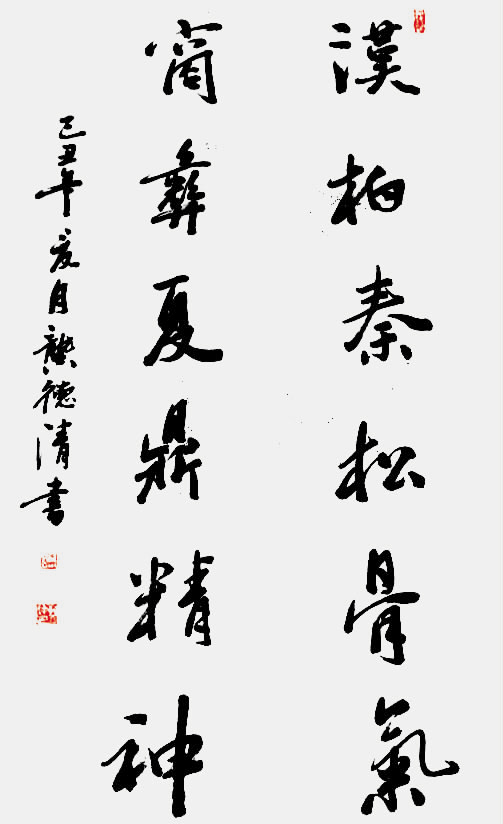 漢柏秦松骨氣
商彝夏鼎精神
己丑年夏月龔德清書